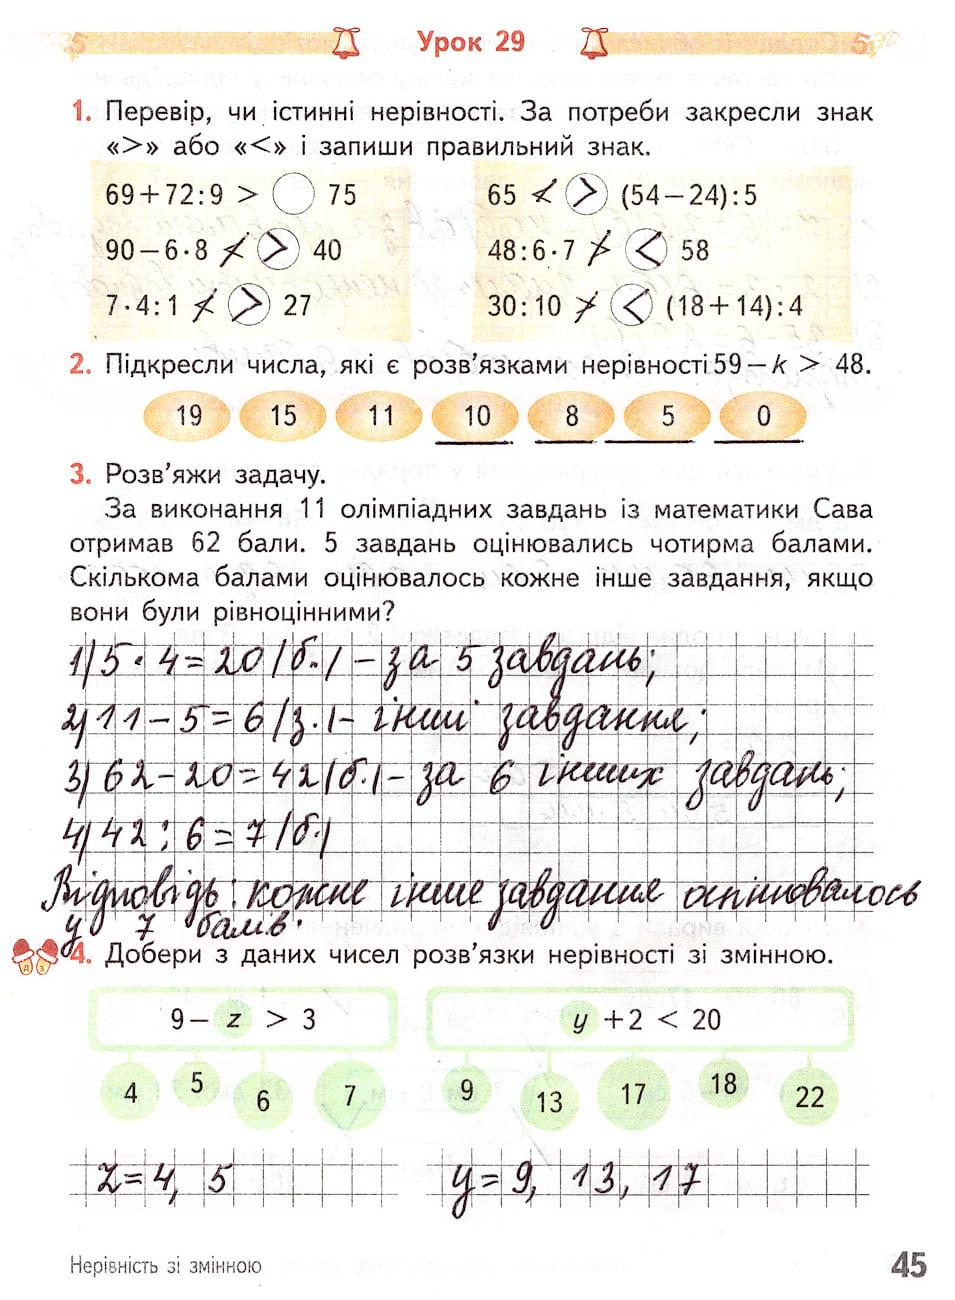 5 Урок 29 5
1. Перевір, чи істинні нерівності. За потреби закресли знак
«>» або «<» і запиши правильний знак.
69+72:9 > 75
65 < > (54−24):5
90−6·8 < > 40
48:6·7 > < 58
7·4:1 < > 27
30:10 > < (18+14):4
2. Підкресли числа, які є розв'язками нерівності 59−k > 48.
19 15 11 10 8 5 0
3. Розв'яжи задачу.
За виконання 11 олімпіадних завдань із математики Сава
отримав 62 бали. 5 завдань оцінювались чотирма балами.
Скількома балами оцінювалось кожне інше завдання, якщо
вони були рівноцінними?
1) 5 · 4 = 20 (б.) – за 5 завдань;
2) 11 – 5 = 6 (з.) – інші завдання;
3) 62 – 20 = 42 (б.) – за 6 інших завдань;
4) 42 : 6 = 7 (б.)
Відповідь: кожне інше завдання оцінювалось
у 7 балів.
4. Добери з даних чисел розв'язки нерівності зі змінною.
9− z > 3
y +2 < 20
4 5 6 7
9 13 17 18 22
z = 4, 5
y = 9, 13, 17
Нерівність зі змінною
45